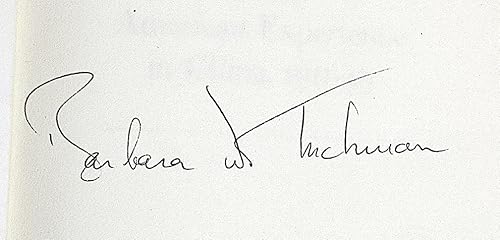 American Experience
in China, 
Barbara W. Tuchman